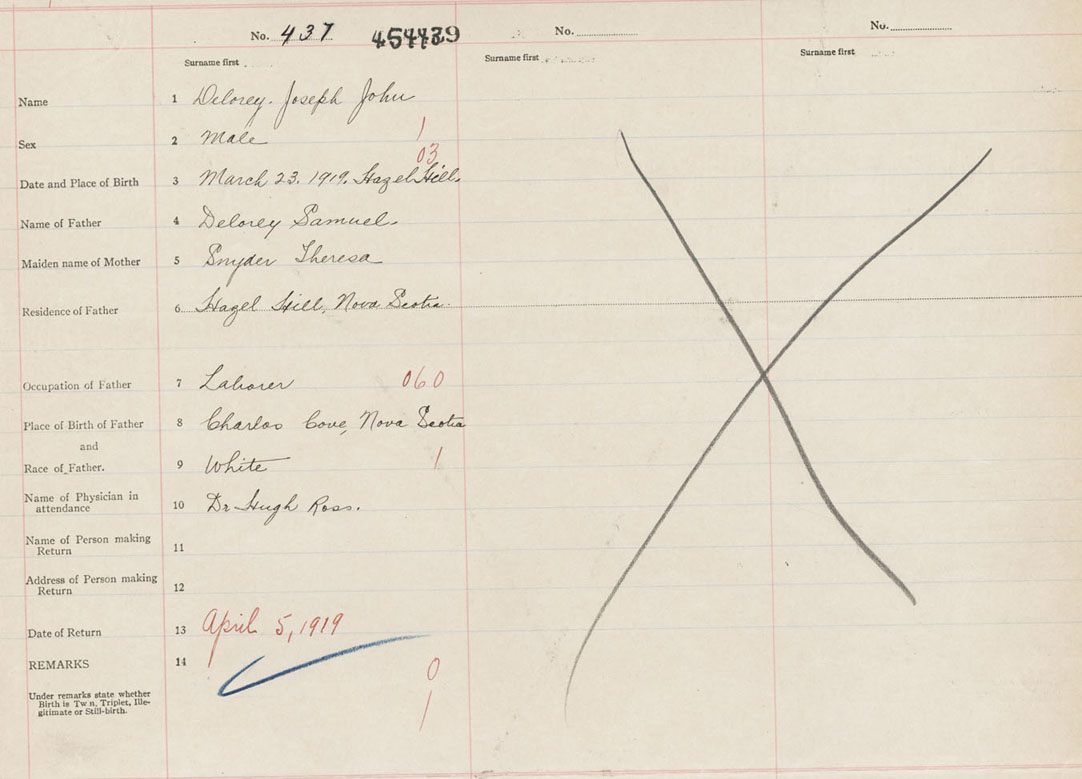 No. 437 No. No.
Surname first Surname first Surname first
Name 1 Delorey. Joseph John
Sex 2 Male 1
03
Date and Place of Birth 3 March 23. 1919. Hazel Hill.
Name of Father 4 Delorey Samuel.
Maiden name of Mother 5 Snyder Theresa
Residence of Father 6 Hazel Hill, Nova Scotia.
Occupation of Father 7 Laborer 060
Place of Birth of Father 8 Charlos Cove, Nova Scotia
and
Race of Father. 9 White 1
Name of Physician in
attendance 10 Dr Hugh Ross.
Name of Person making
Return 11
Address of Person making
Return 12
Date of Return 13 April 5, 1919
REMARKS 14
0
Under remarks state whether
Birth is Tw n, Triplet, Ille-
gitimate or Still-birth.
1